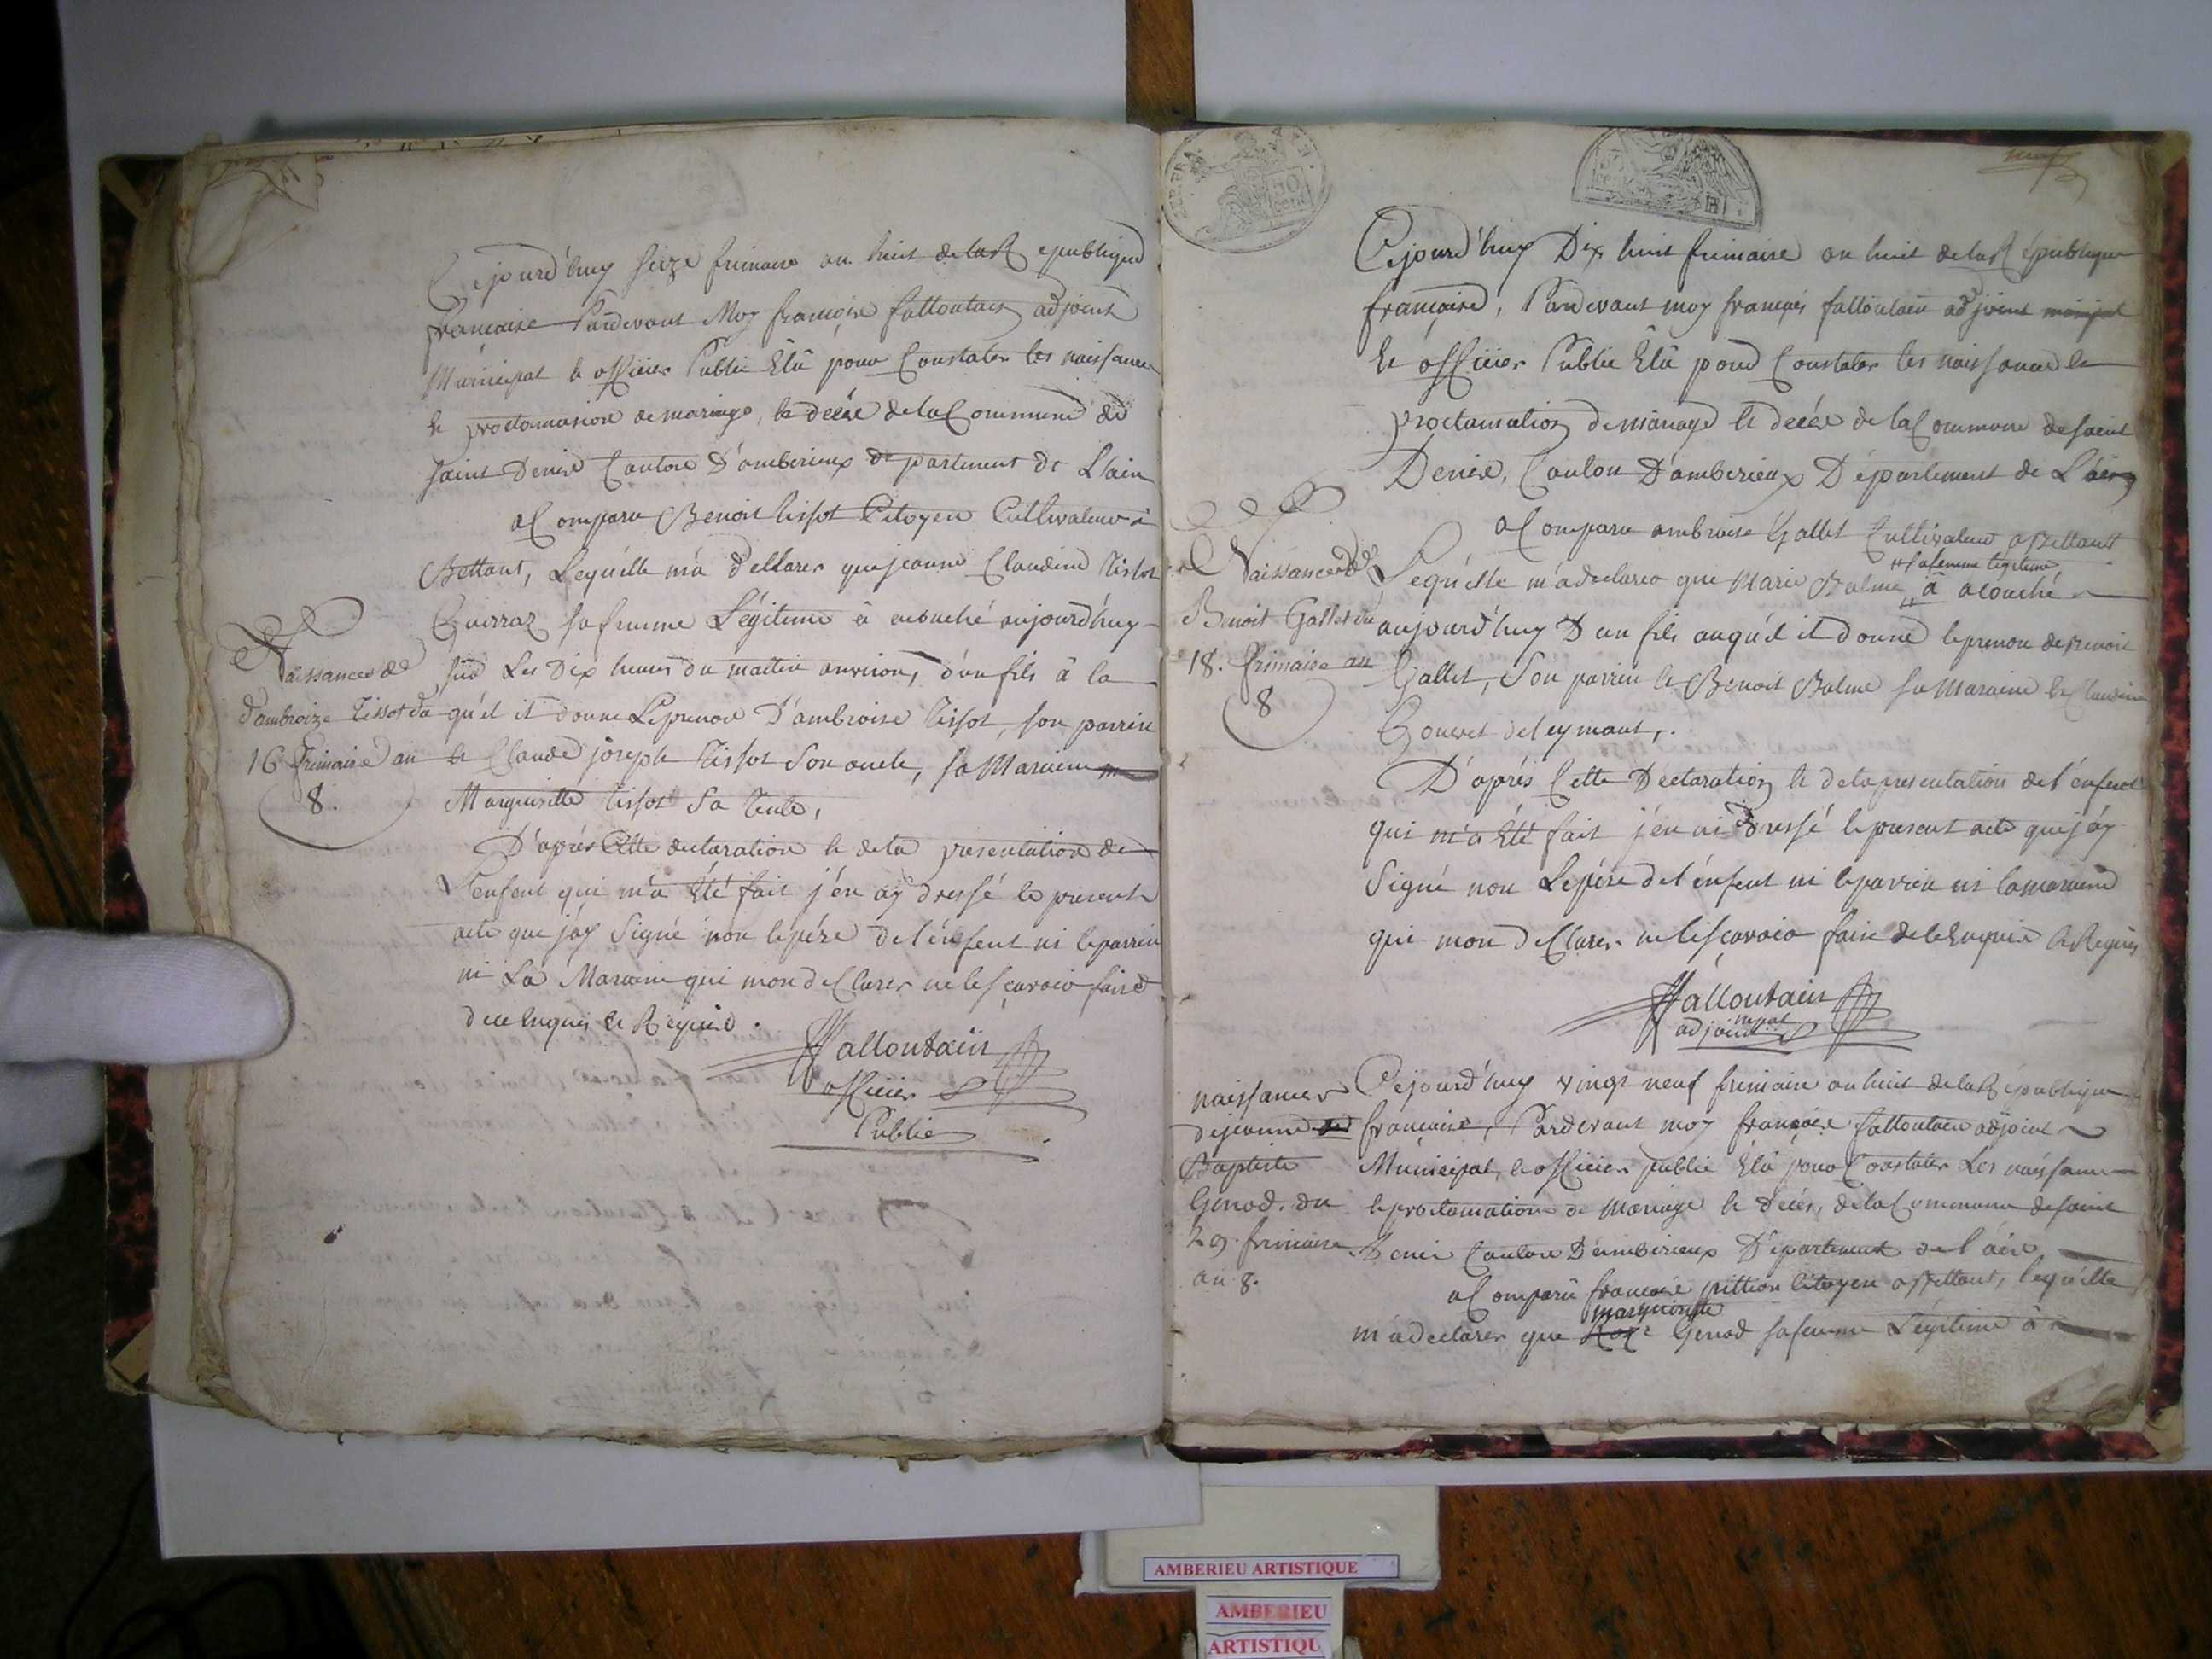 Cejourd'huy seize frimaire an huit de la Republique
francaise Pardevant Moy françoise falloutain adjoint
Municipal & officier Public Elû pour Constater les naissance
& proclamasion de mariage, & decée de la Commune de
saint Denis Canton D'amberieux departement de L'ain
a Comparu Benoit tissot Citoyen Cultivateur à
Bettant, Lequélle m'a déllarer que jeanne Claudine
sa femme Légitime à acouché aujourd'huy
sur Les Dix heures du mattin anviron, d'un fils â la
qu'él it donne Leprenon D'ambroise tissot, son parrin
& Claude joseph tissot Son oncle, sa Maraine
Margueritte tissot Sa tente,
D'aprés Cette declaration & de la presentation de
L'enfent qui m'a Eté fait j'én ay dressé le present
acte que j'ay Signé non lepére de l'énfent ni leparrin
ni La Maraine qui mon declarer ne le sçavoir faire
de ce Enquis & Requis.
falloutain
officier
Public
Naissance de
d'ambroize Tissot du
16 frimaire an
8.
50
cent
Cejourd'huy Dix huit frimaire an huit de la République
françaisse, Pardevant moy françois falloutain adjoint
& officier Public Elû pour Constater les naissance &
proclamation de mariage & decée de la Commune de saint
Denis, Canton D'amberieux Département de L'ain
a Comparu ambroise Gallet Cultivateur a Bettant
Lequélle m'a declarer que Marie Balme "sa femme legitime" â acouché
aujourd'huy D'un fils auquél it donné leprenon de Benoit
Gallet, Son parrin & Benoit Balme sa Maraine & Claudine
de leymant,.
D'aprés Cette Declaration & de la presentation de l'énfent
qui m'a Eté fait j'én ai dressé le present acte que j'ay
Signé non Lepére de l'énfent ni leparrin ni la maraine
qui mon declarer ne le sçavoir faire de ce Enquis & Requis
falloutain
adjoint mpal
Naissance de
Benoit Gallet du
18. frimaire an
8
Cejourd'huy vingt neuf frimaire an huit de la République
française, Pardevant moy françoise falloutain adjoint
Municipal, & officier public Elû pour Constater Les naissance
& proclamation de Mariage & Décés, de la Commune de saint
Denis Canton D'amberieux Département de l'ain,
a Comparû françoise pittion Citoyen a Bettant, lequ'élle
m'a declarer que margueritte Genod sa femme Légitime â
naissance
de jeanne
Baptiste
Genod. du
29. frimaire
an 8.
AMBERIEU ARTISTIQUE
AMBERIEU
ARTISTIQU